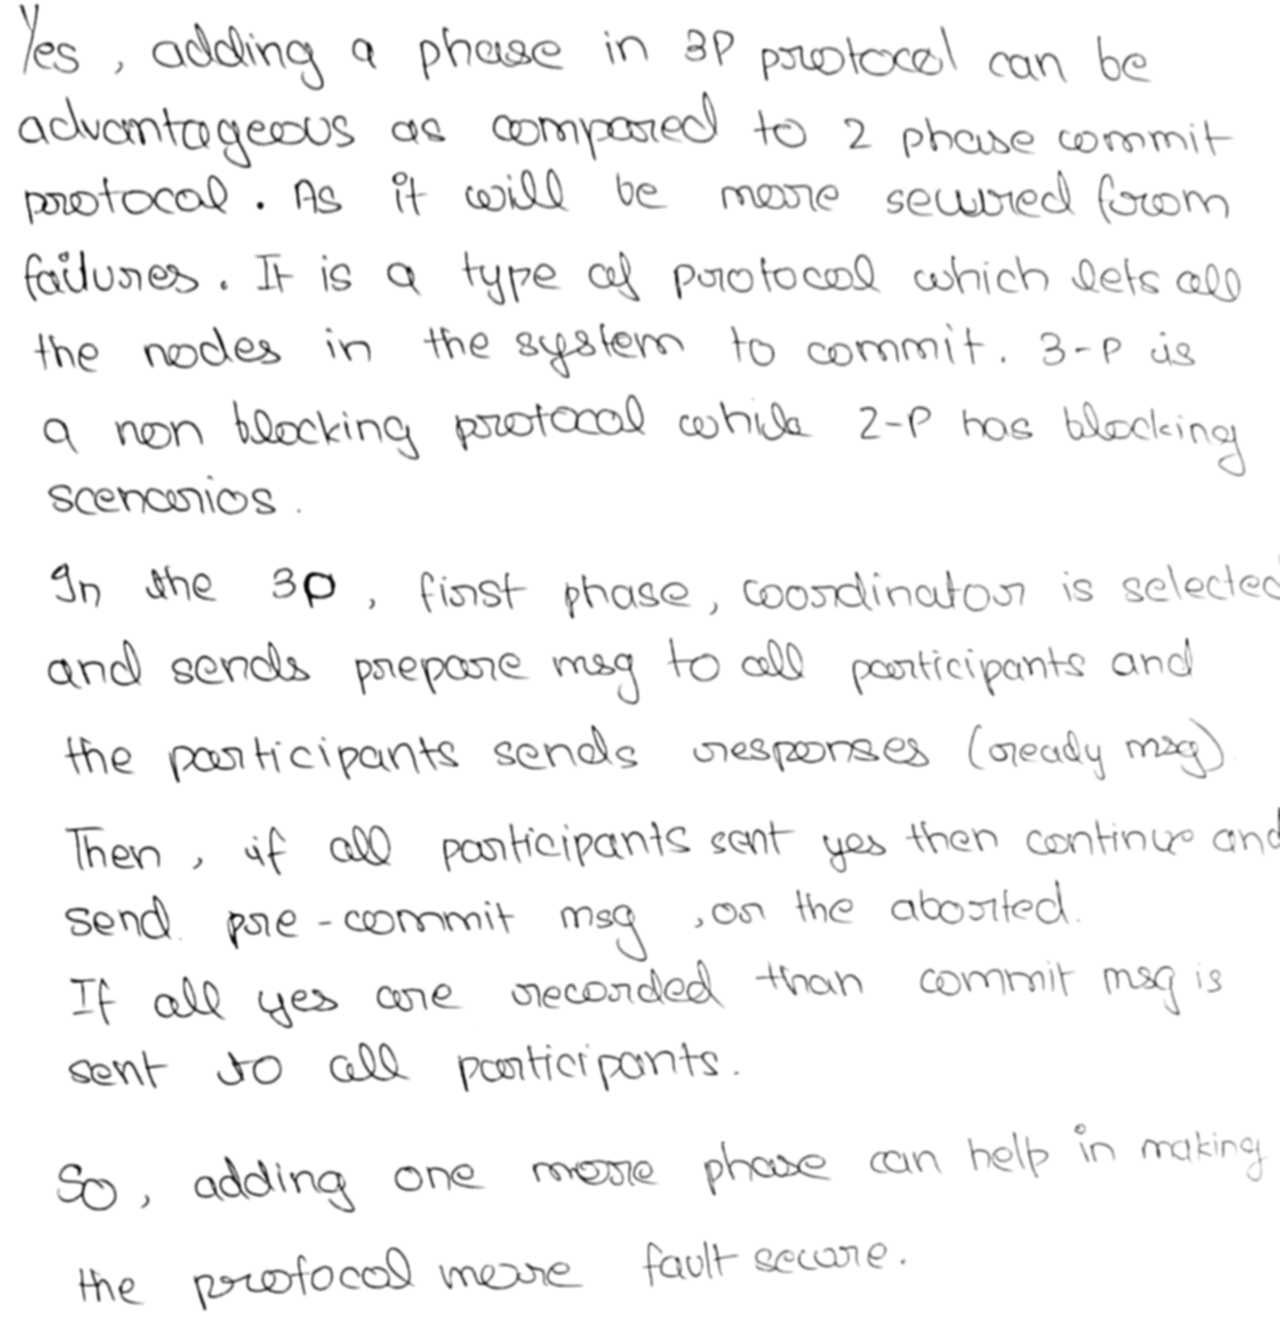 Yes, adding a phase in 3P protocol can be
advantageous as compared to 2 phase commit
protocal. As it will be more secured from
failures. It is a type of protocol which lets all
the nodes in the system to commit. 3-P is
a non blocking protocal while 2-P has blocking
scenarios.
In the 3P, first phase, coordinator is selected
and sends prepare msg to all participants and
the participants sends responses (ready msg)
Then, if all participants sent yes then continue and
send pre-commit msg, or the aborted.
If all yes are recorded than commit msg is
sent to all participants.
So, adding one more phase can help in making
the protocol more fault secure.